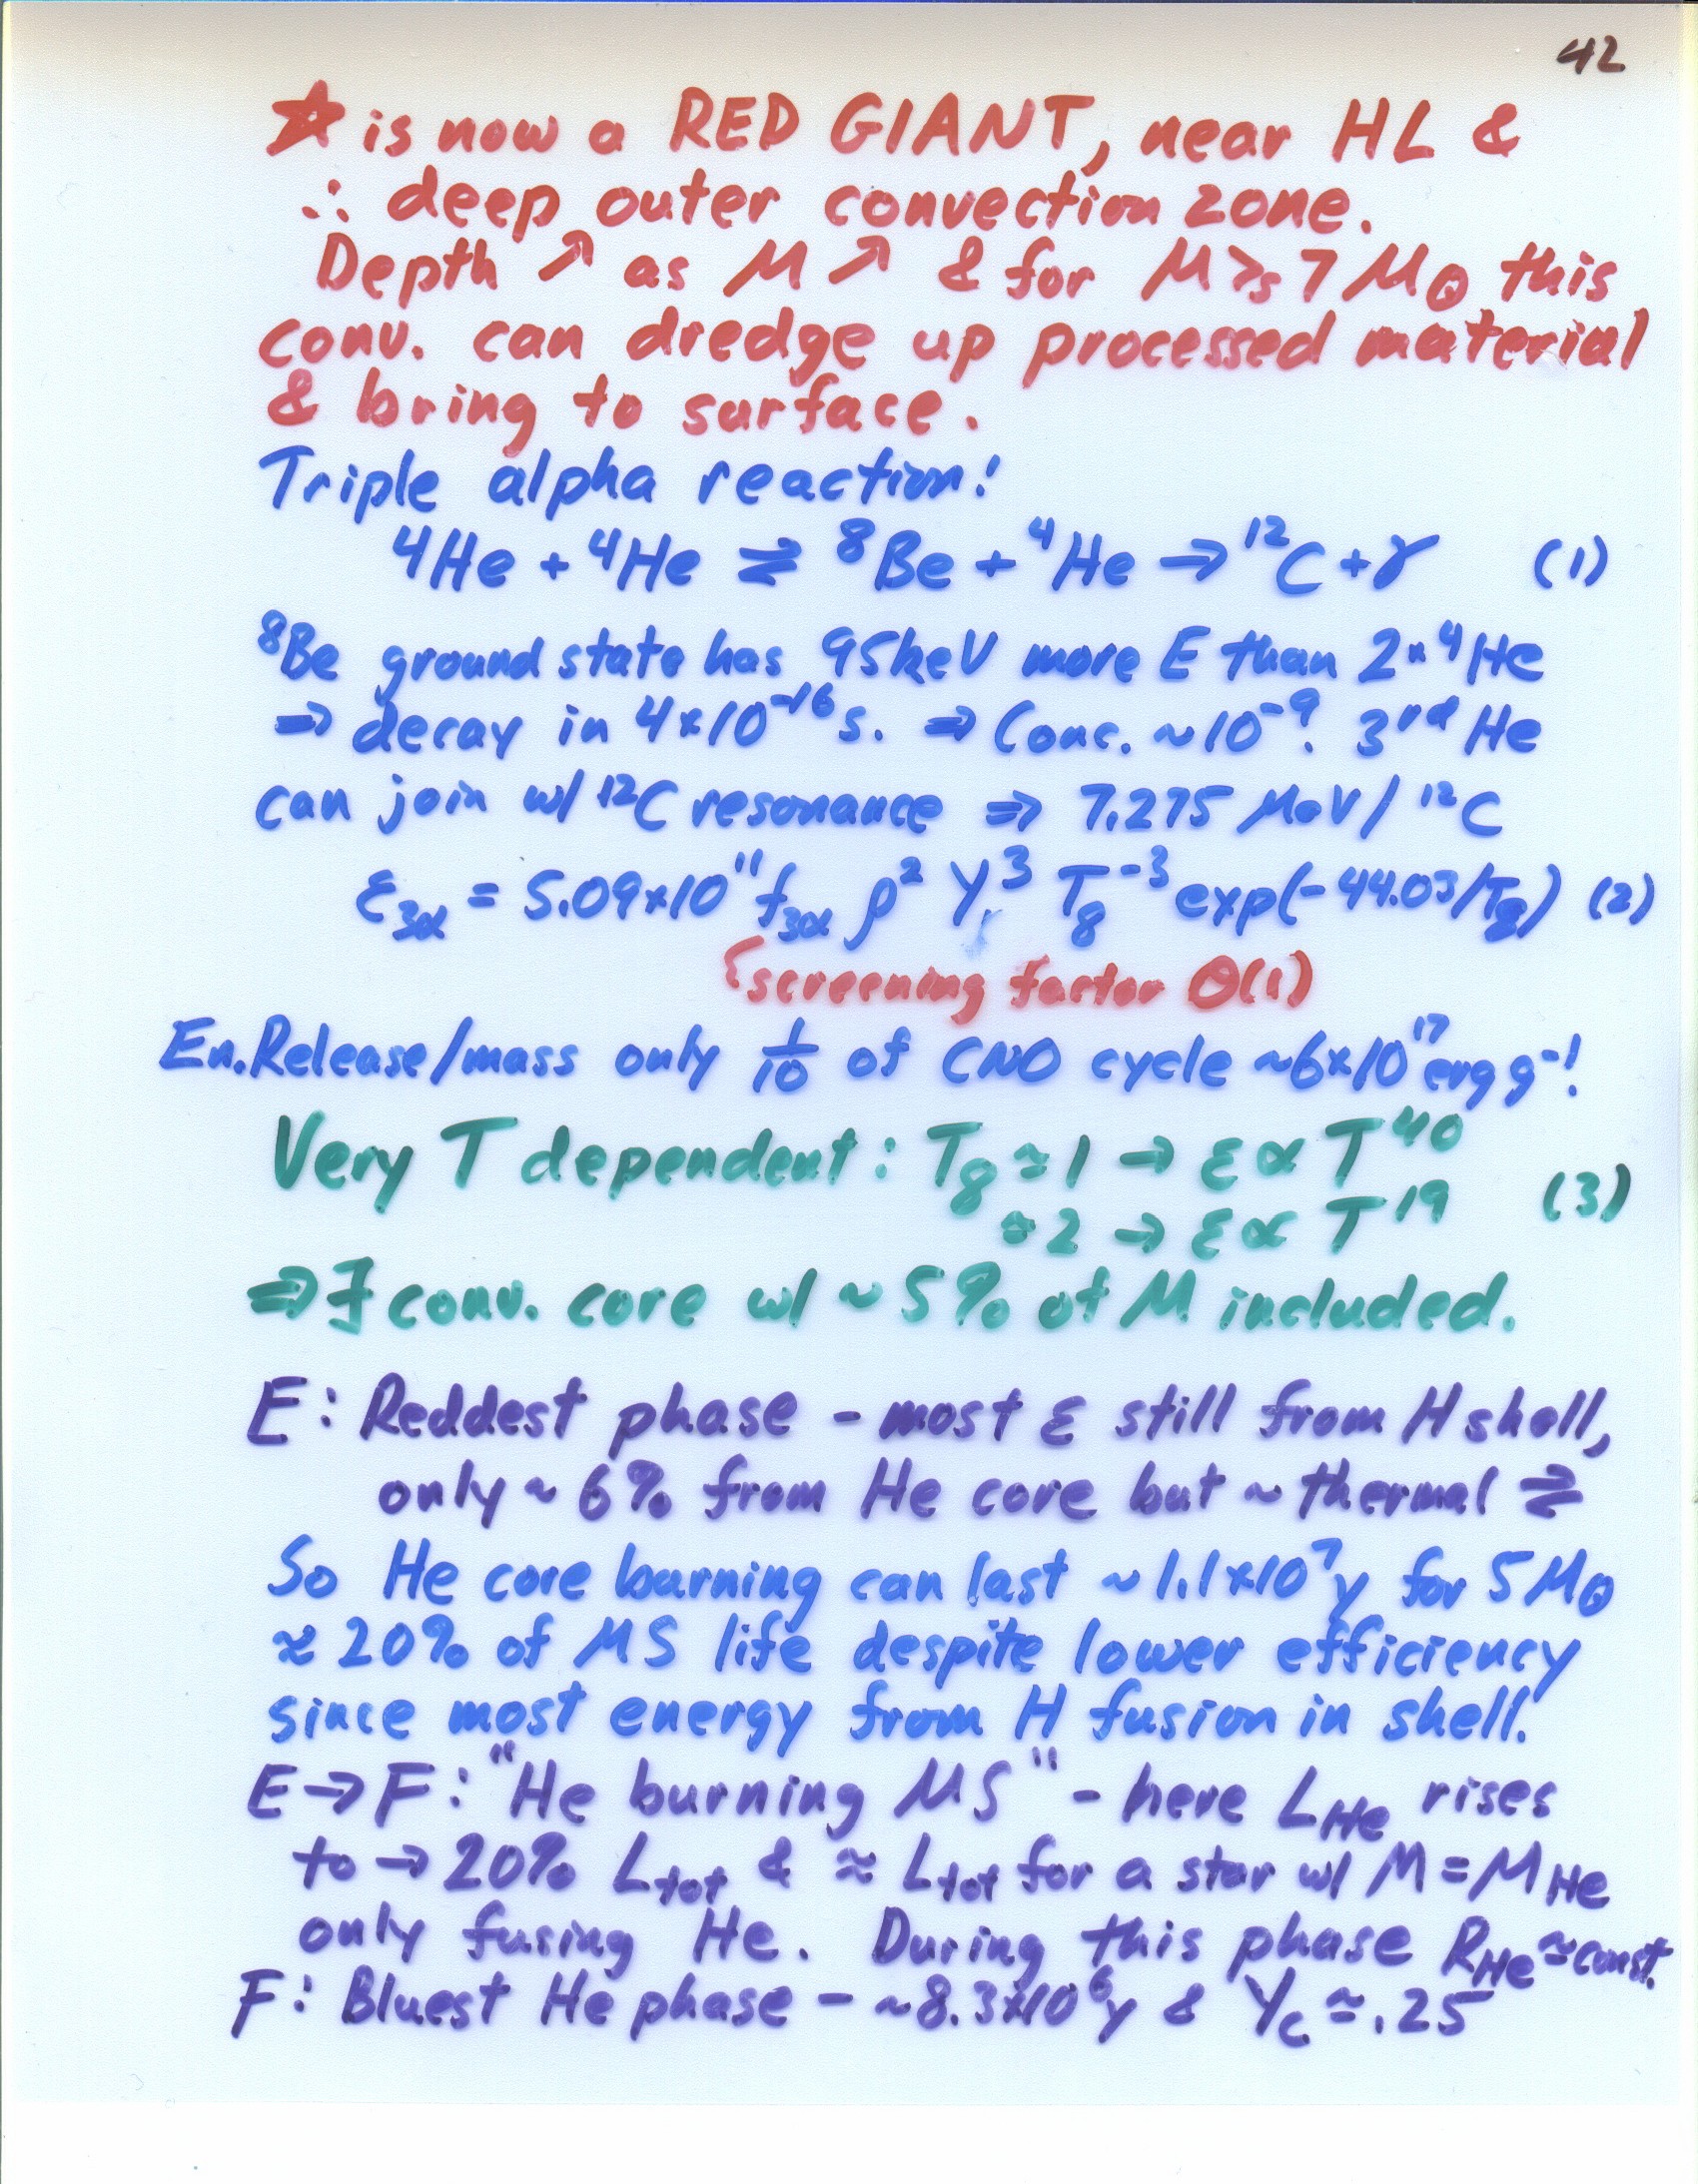 42
☆ is now a RED GIANT, near HL &
∴ deep outer convection zone.
Depth ↗ as M ↗ & for M ≳ 7 M⊙ this
conv. can dredge up processed material
& bring to surface.
Triple alpha reaction!
⁴He + ⁴He ⇌ ⁸Be + ⁴He → ¹²C + γ (1)
⁸Be ground state has 95keV more E than 2×⁴He
⇒ decay in 4×10⁻¹⁶ s. ⇒ Conc. ~10⁻⁹. 3rd He
can join w/ ¹²C resonance ⇒ 7.275 MeV/¹²C
ε₃α = 5.09×10¹¹ f₃α ρ² Y³ T₈⁻³ exp(-44.03/T₈) (2)
screening factor O(1)
En. Release/mass only 1/10 of CNO cycle ~6×10¹⁷ erg g⁻¹
Very T dependent: T₈ ≈ 1 → ε ∝ T⁴⁰
≈ 2 → ε ∝ T¹⁹ (3)
⇒ ∃ conv. core w/ ~5% of M included.
E: Reddest phase - most ε still from H shell,
only ~ 6% from He core but ~ thermal ⇌
So He core burning can last ~1.1×10⁷y for 5 M⊙
≈ 20% of MS life despite lower efficiency
since most energy from H fusion in shell.
E→F: "He burning MS" - here L_He rises
to → 20% L_tot & ≈ L_tot for a star w/ M = M_He
only fusing He. During this phase R_He ≈ const.
F: Bluest He phase - ~8.3×10⁶y & Y_c ≈ .25